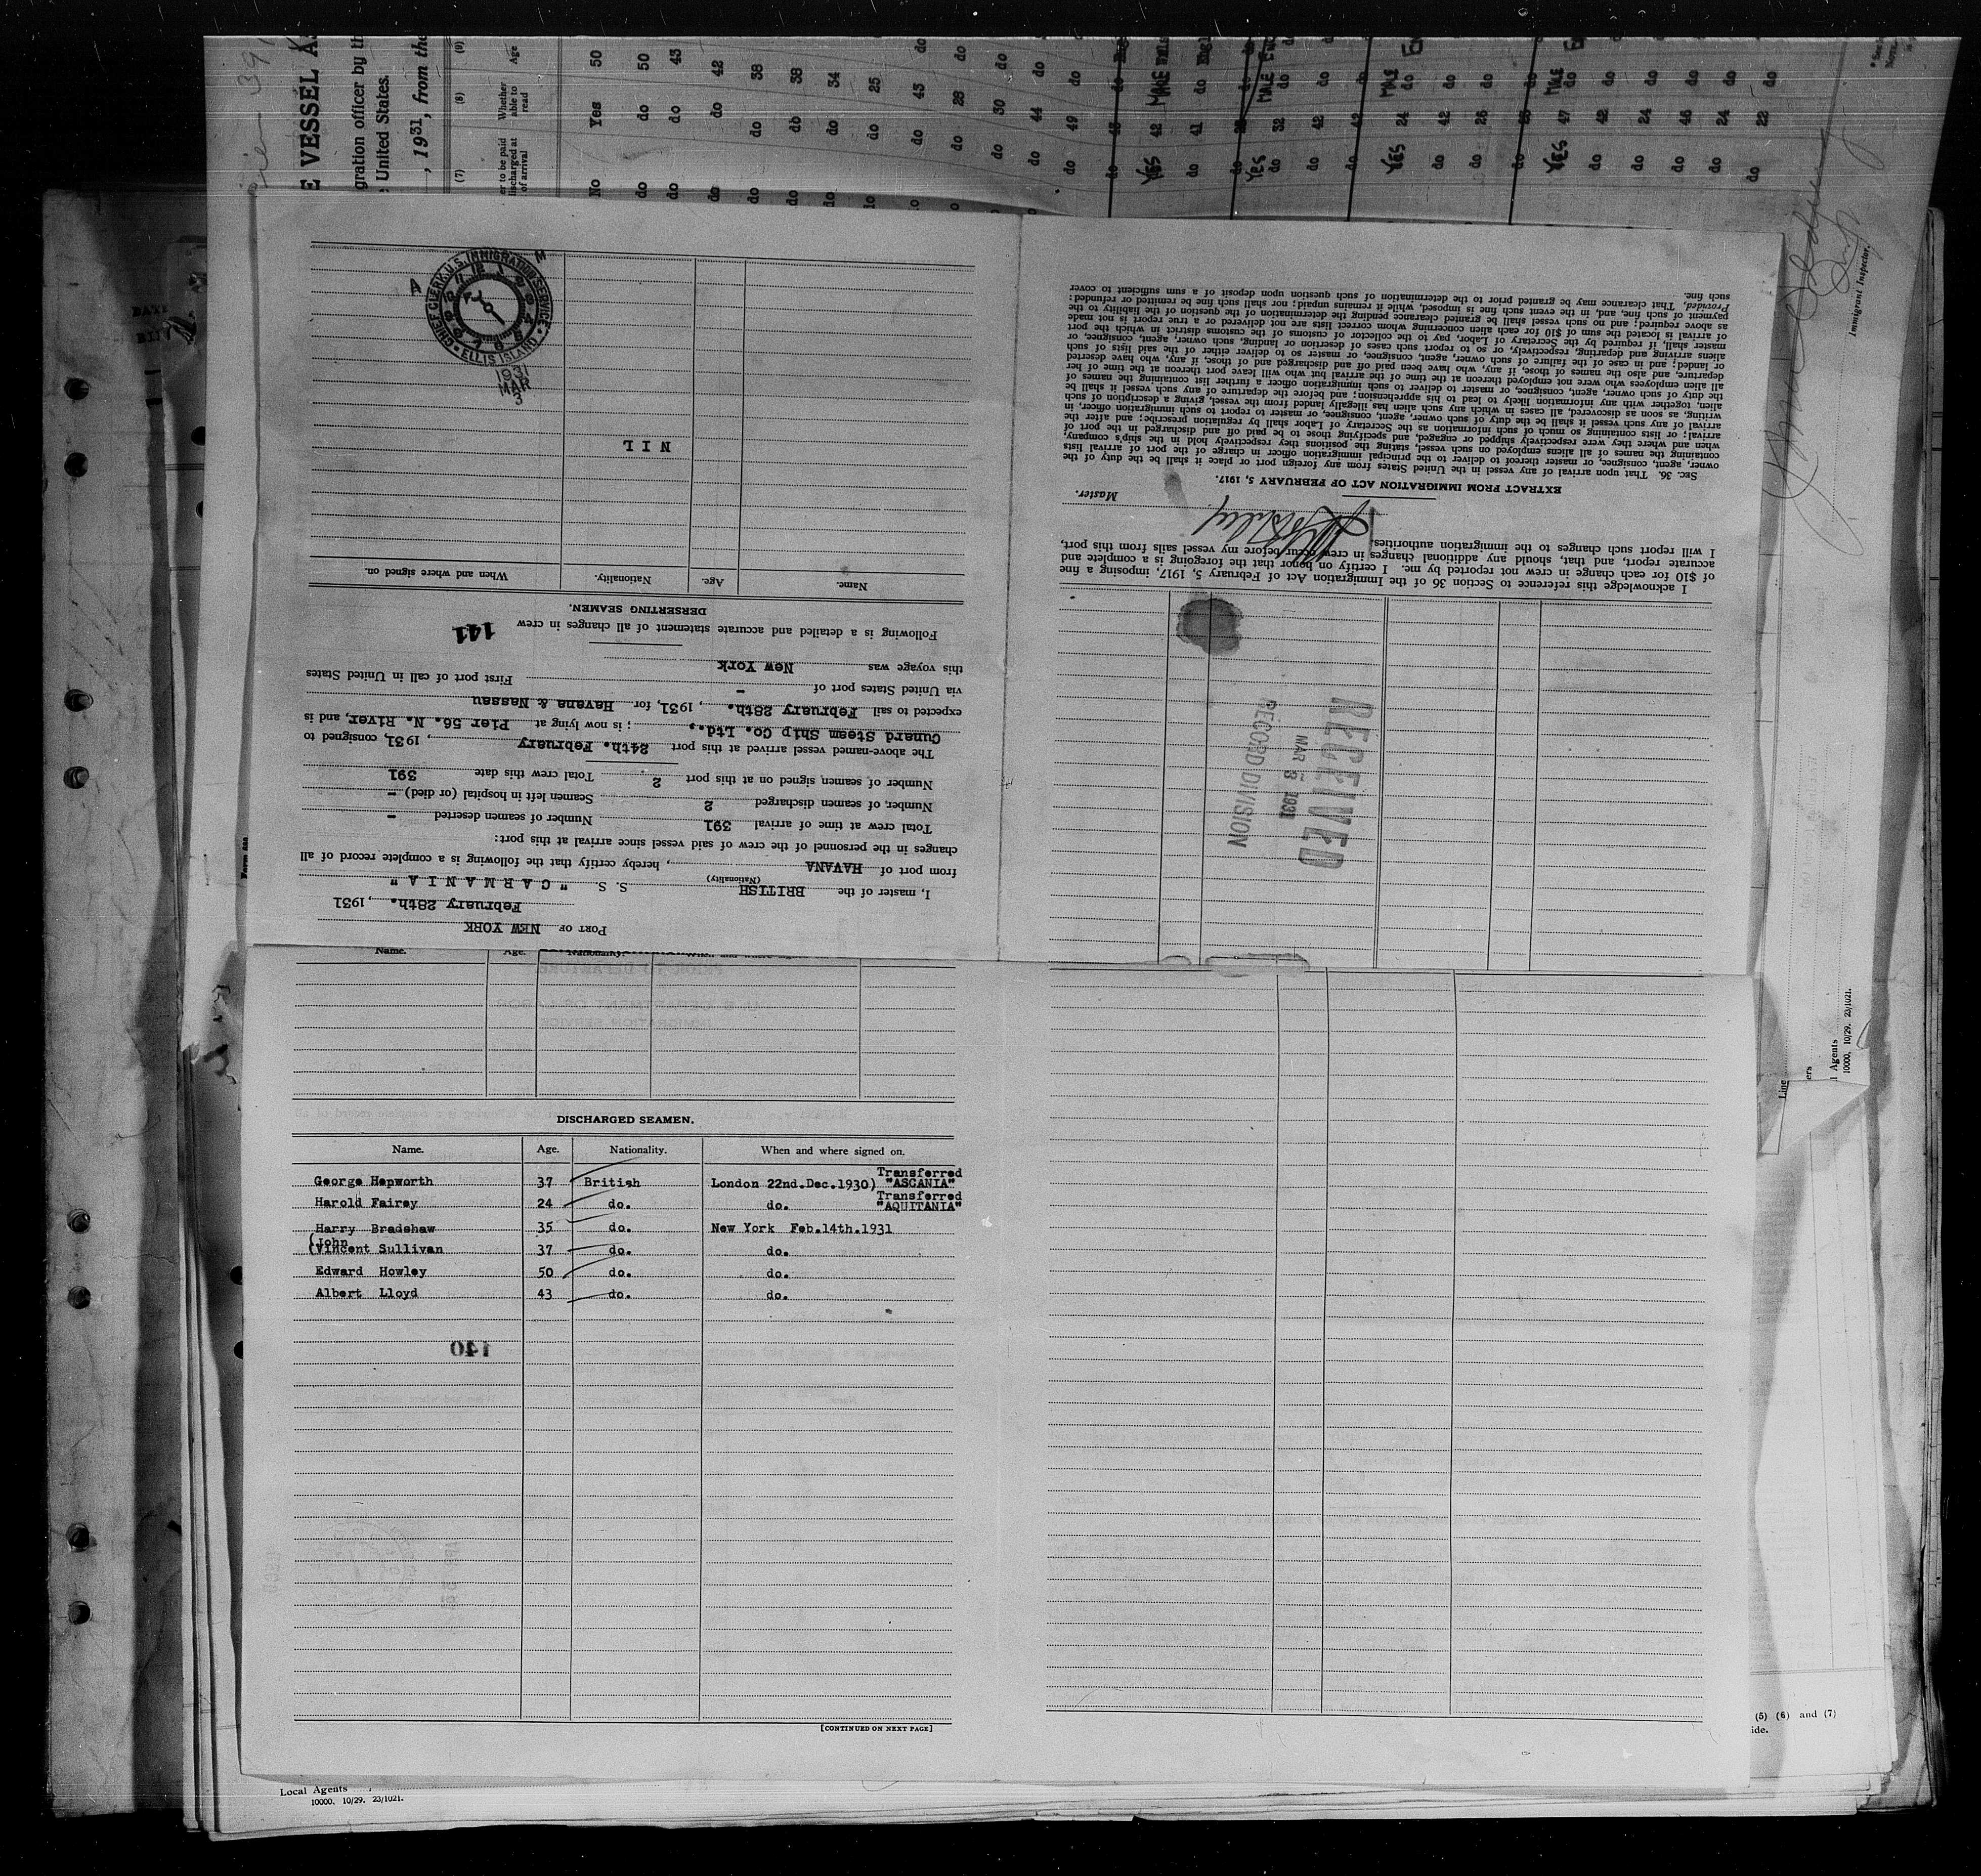 E VESSEL
gration officer by
United States.
, 1931, from the
(7) (8) (9)
Whether able to read
Age
No Yes 50
do do 50
do do 43
do do 42
do do 38
do do 38
do do 34
do do 25
do do 43
do do 28
do do 30
do 44 do
do 49 do
YES 42 MALE
do 41 do
YES 32 do
do 42 do
YES 24 do
do 42 do
do 26 do
YES 47 do
do 42 do
do 24 do
do 46 do
do 24 do
do 22 do
Immigrant Inspector.
PORT OF NEW YORK
February 28th., 1931
I, master of the BRITISH S. S. "CARMANIA"
(Nationality)
from port of HAVANA, hereby certify that the following is a complete record of all
changes in the personnel of the crew of said vessel since arrival at this port:
Total crew at time of arrival 391 Number of seamen deserted -
Number of seamen discharged 2 Seamen left in hospital (or died) -
Number of seamen signed on at this port 2 Total crew this date 391
The above-named vessel arrived at this port 24th. February, 1931, consigned to
Cunard Steam Ship Co. Ltd., ; is now lying at Pier 56. N. River, and is
expected to sail February 28th., 1931, for Havana & Nassau
via United States port of - First port of call in United States
this voyage was New York
Following is a detailed and accurate statement of all changes in crew
141
DERSERTING SEAMEN.
Name. Age. Nationality. When and where signed on.
NIL
CHIEF CLERK, U.S. IMMIGRATION SERVICE
ELLIS ISLAND
1931
MAR
3
A M
Form 688
RECEIVED
MAR 3 1931
RECORD DIVISION
I acknowledge this reference to Section 36 of the Immigration Act of February 5, 1917, imposing a fine
of $10 for each change in crew not reported by me. I certify on honor that the foregoing is a complete and
accurate report, and that, should any additional changes in crew occur before my vessel sails from this port,
I will report such changes to the immigration authorities.
Master.
EXTRACT FROM IMMIGRATION ACT OF FEBRUARY 5, 1917.
SEC. 36. That upon arrival of any vessel in the United States from any foreign port or place it shall be the duty of the
owner, agent, consignee, or master thereof to deliver to the principal immigration officer in charge of the port of arrival lists
containing the names of all aliens employed on such vessel, stating the positions they respectively hold in the ship's company,
when and where they were respectively shipped or engaged, and specifying those to be paid off and discharged in the port of
arrival; or lists containing so much of such information as the Secretary of Labor shall by regulation prescribe; and after the
arrival of any such vessel it shall be the duty of such owner, agent, consignee, or master to report to such immigration officer, in
writing, as soon as discovered, all cases in which any such alien has illegally landed from the vessel, giving a description of such
alien, together with any information likely to lead to his apprehension; and before the departure of any such vessel it shall be
the duty of such owner, agent, consignee, or master to deliver to such immigration officer a further list containing the names of
all alien employees who were not employed thereon at the time of the arrival but who will leave port thereon at the time of her
departure, and also the names of those, if any, who have been paid off and discharged and of those, if any, who have deserted
or landed; and in case of the failure of such owner, agent, consignee, or master so to deliver either of the said lists of such
aliens arriving and departing, respectively, or so to report such cases of desertion or landing, such owner, agent, consignee, or
master shall, if required by the Secretary of Labor, pay to the collector of customs of the customs district in which the port
of arrival is located the sum of $10 for each alien concerning whom correct lists are not delivered or a true report is not made
as above required; and no such vessel shall be granted clearance pending the determination of the question of the liability to the
payment of such fine, and, in the event such fine is imposed, while it remains unpaid; nor shall such fine be remitted or refunded:
Provided, That clearance may be granted prior to the determination of such question upon deposit of a sum sufficient to cover
such fine.
Name. Age. Nationality.
DISCHARGED SEAMEN.
Name. Age. Nationality. When and where signed on.
George Hepworth 37 British London 22nd.Dec.1930) Transferred "ASCANIA"
Harold Fairey 24 do. do. Transferred "AQUITANIA"
Harry Bradshaw 35 do. New York Feb.14th.1931
(John
(Vincent Sullivan 37 do. do.
Edward Howley 50 do. do.
Albert Lloyd 43 do. do.
140
[CONTINUED ON NEXT PAGE]
Local Agents
10000. 10/29. 23/1021.
Line
ers
l Agents
10000, 10/29. 23/1021.
(5) (6) and (7)
ide.